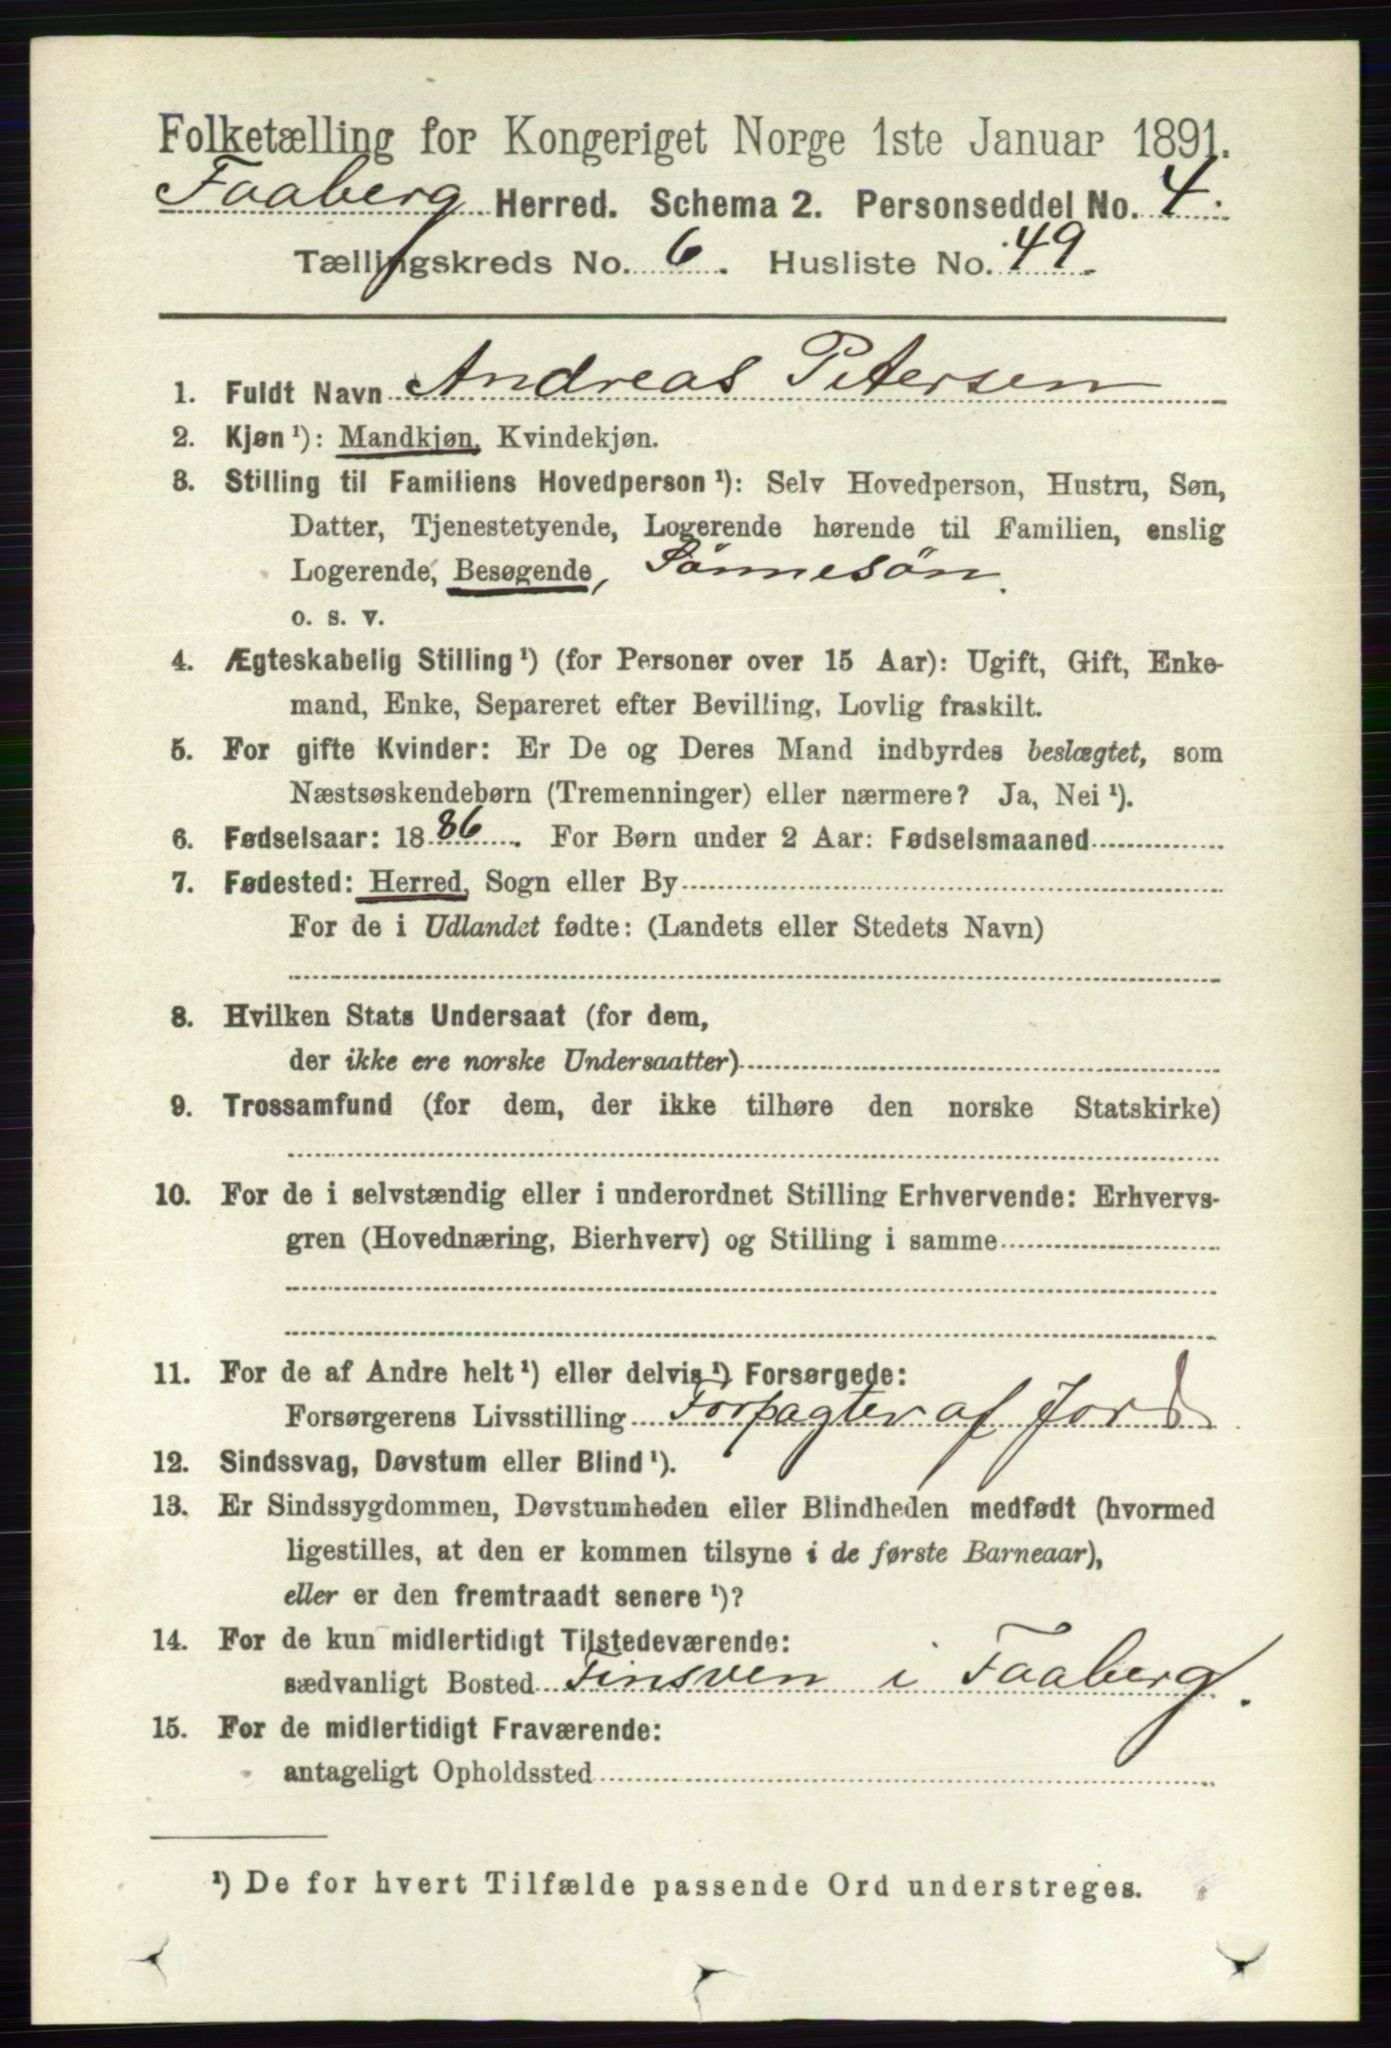 Folketælling for Kongeriget Norge 1ste Januar 1891.
Faaberg Herred. Schema 2. Personseddel No. 4.
Tællingskreds No. 6. Husliste No. 49.
1. Fuldt Navn Andreas Petersen
2. Kjøn ¹): Mandkjøn, Kvindekjøn.
3. Stilling til Familiens Hovedperson ¹): Selv Hovedperson, Hustru, Søn,
Datter, Tjenestetyende, Logerende hørende til Familien, enslig
Logerende, Besøgende, Sønnesøn.
o. s. v.
4. Ægteskabelig Stilling ¹) (for Personer over 15 Aar): Ugift, Gift, Enke-
mand, Enke, Separeret efter Bevilling, Lovlig fraskilt.
5. For gifte Kvinder: Er De og Deres Mand indbyrdes beslægtet, som
Næstsøskendebørn (Tremenninger) eller nærmere? Ja, Nei ¹).
6. Fødselsaar: 1886. For Børn under 2 Aar: Fødselsmaaned
7. Fødested: Herred, Sogn eller By
For de i Udlandet fødte: (Landets eller Stedets Navn)
8. Hvilken Stats Undersaat (for dem,
der ikke ere norske Undersaatter)
9. Trossamfund (for dem, der ikke tilhøre den norske Statskirke)
10. For de i selvstændig eller i underordnet Stilling Erhvervende: Erhvervs-
gren (Hovednæring, Bierhverv) og Stilling i samme
11. For de af Andre helt ¹) eller delvis ¹) Forsørgede:
Forsørgerens Livsstilling Forpagter af Jord
12. Sindssvag, Døvstum eller Blind ¹).
13. Er Sindssygdommen, Døvstumheden eller Blindheden medfødt (hvormed
ligestilles, at den er kommen tilsyne i de første Barneaar),
eller er den fremtraadt senere ¹)?
14. For de kun midlertidigt Tilstedeværende:
sædvanligt Bosted Finsven i Faaberg.
15. For de midlertidigt Fraværende:
antageligt Opholdssted
¹) De for hvert Tilfælde passende Ord understreges.